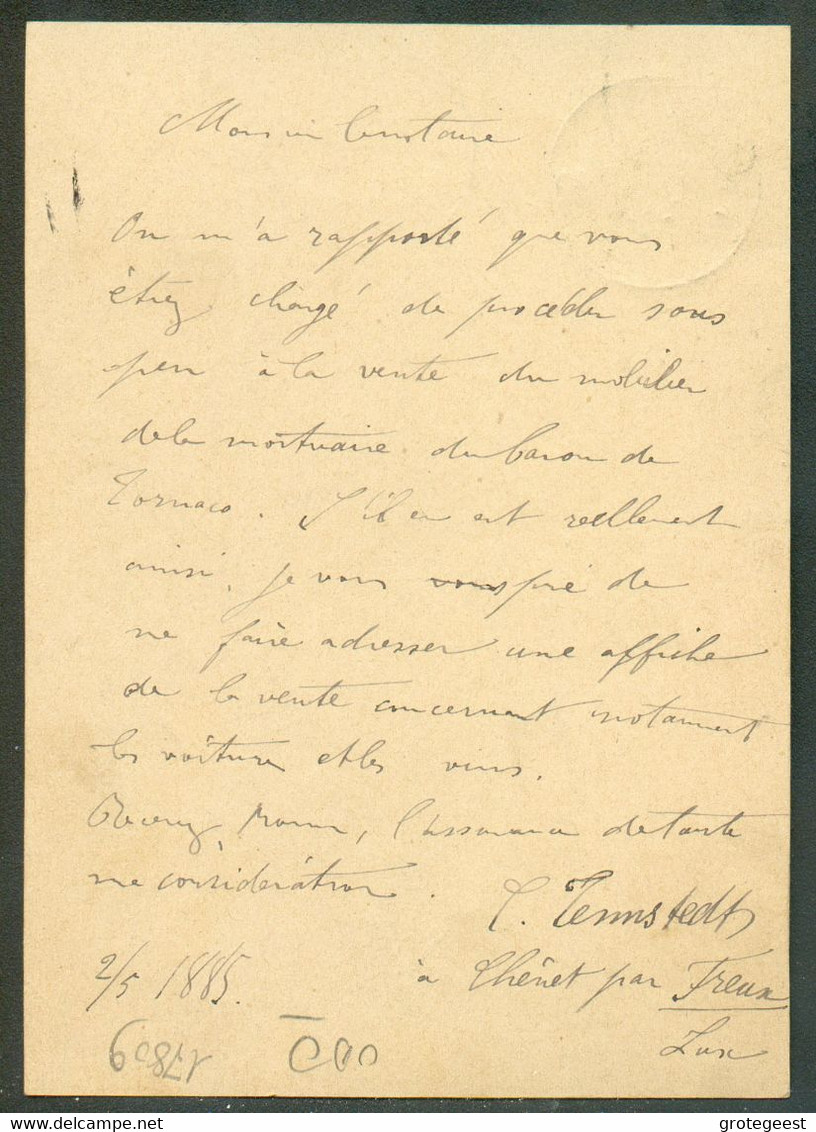 Monsieur le notaire
On m'a rapporté que vous
étiez chargé de procéder sous
peu à la vente du mobilier
de la mortuaire du baron de
Tornaco. S'il en est réellement
ainsi, je vous vous prie de
me faire adresser une affiche
de la vente concernant notamment
les voitures et les vins.
Recevez, Monsieur, l'assurance de toute
ma considération.
C. Tennstedt
2/5 1885.
à Chênet par Freux
Lux
delcampe.net
grotegeest